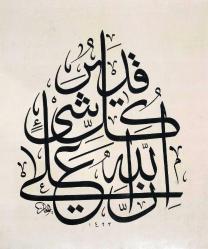 ان الله على
كل شئ
قدير
١٤٢٢